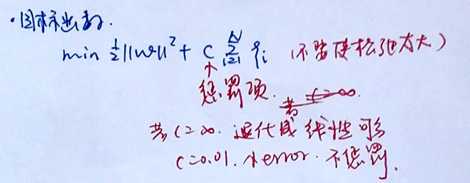 ·目标函数.
min ½||w||² + C Σᵢ₌₁ᴺ ξᵢ (不要使松弛太大)
惩罚项.
若 C=∞. 退化成 线性可分
C=0.01. 大error. 不惩罚.